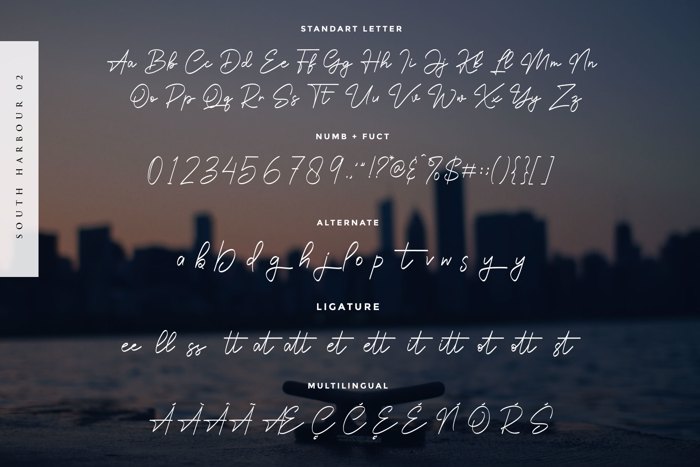 STANDART LETTER
Aa Bb Cc Dd Ee Ff Gg Hh Ii Jj Kk Ll Mm Nn
Oo Pp Qq Rr Ss Tt Uu Vv Ww Xx Yy Zz
NUMB + FUCT
0123456789
SOUTH HARBOUR 02
ALTERNATE
a b D d g h j l o p t v w s y y
LIGATURE
ee ll ss tt at att et ett it itt ot ott st
MULTILINGUAL